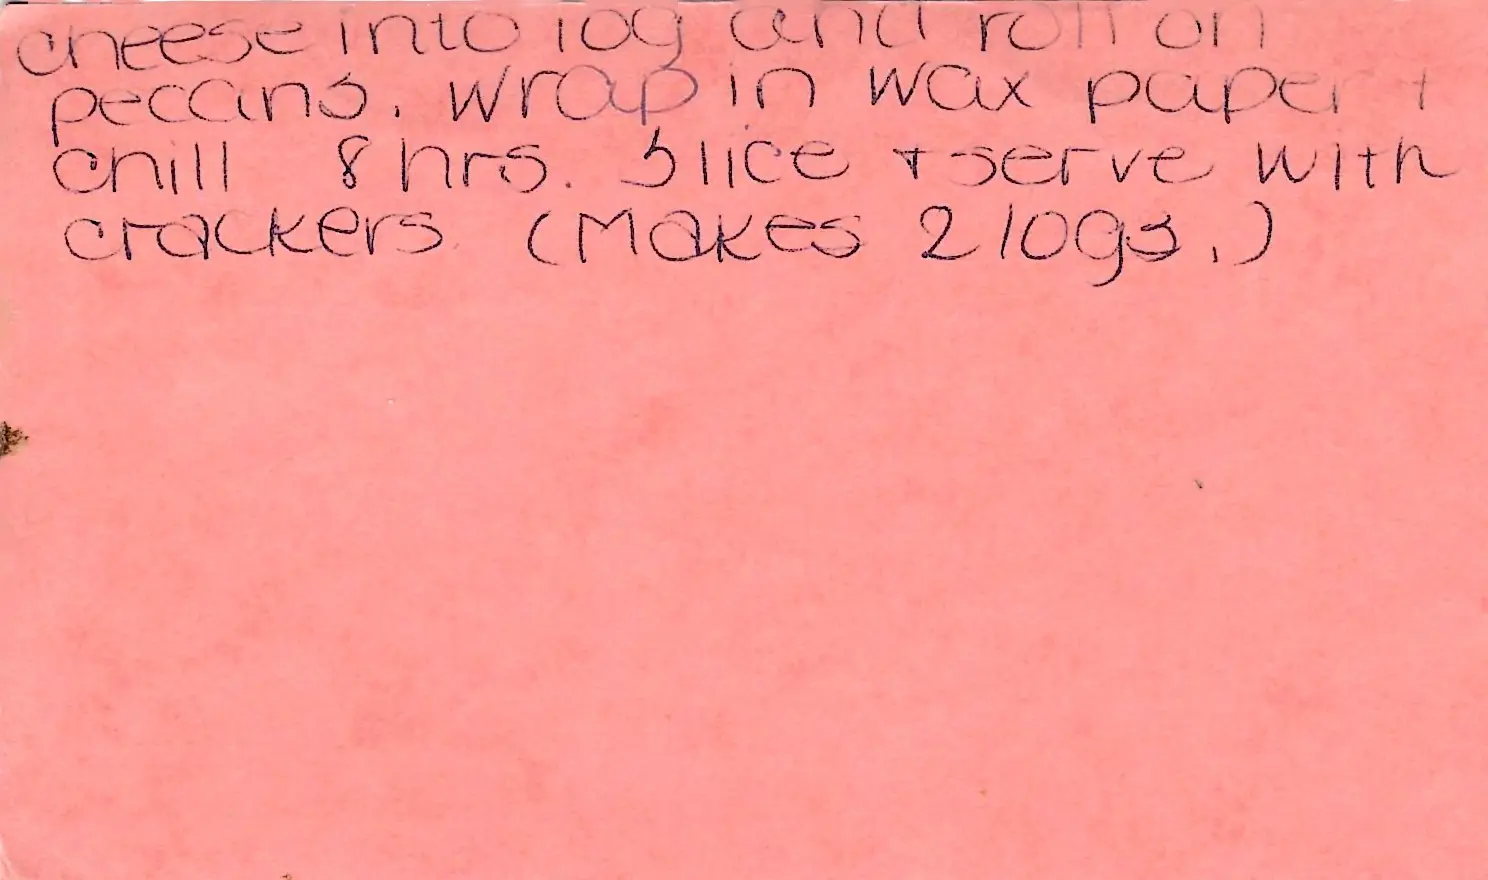 cheese into log and roll on
pecans. Wrap in wax paper +
chill 8 hrs. Slice + serve with
crackers (Makes 2 logs.)